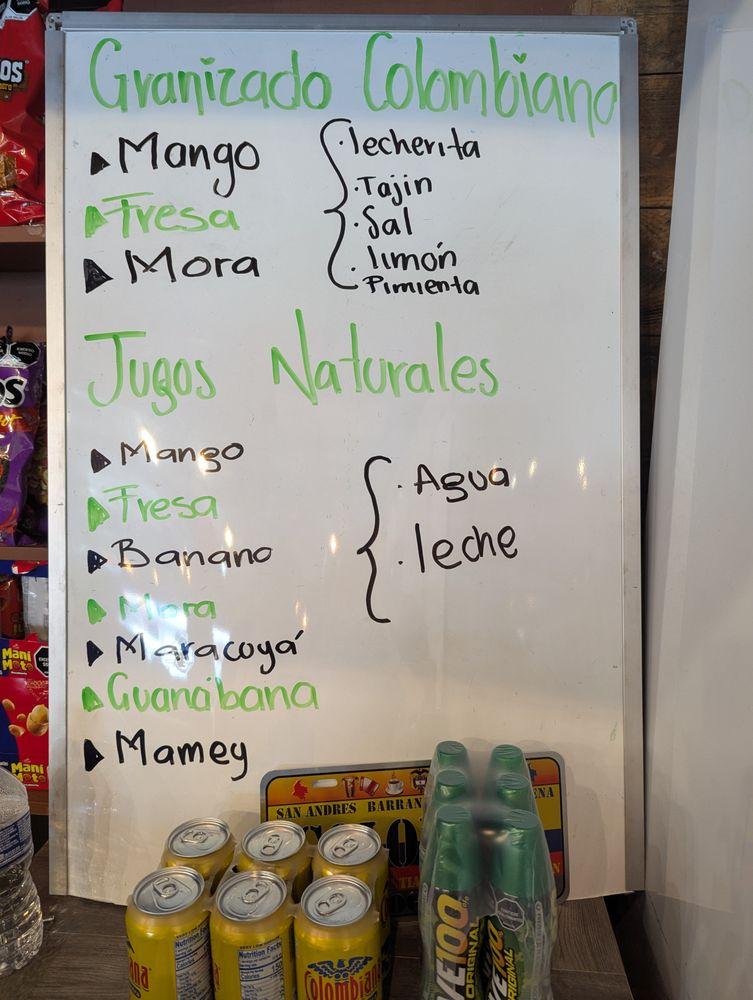 Granizado Colombiano
Mango
Fresa
Mora
· lecherita
· Tajin
· Sal
· limón
· Pimienta
Jugos Naturales
Mango
Fresa
Banano
Mora
Maracoyá
Guanábana
Mamey
· Agua
· leche
Mani
Moto
Mani
Moto
SAN ANDRES BARRAN
ENA
Nutrition Facts
Nutrition Facts
Colombiana
VE100
ORIGINAL
ORIGINAL